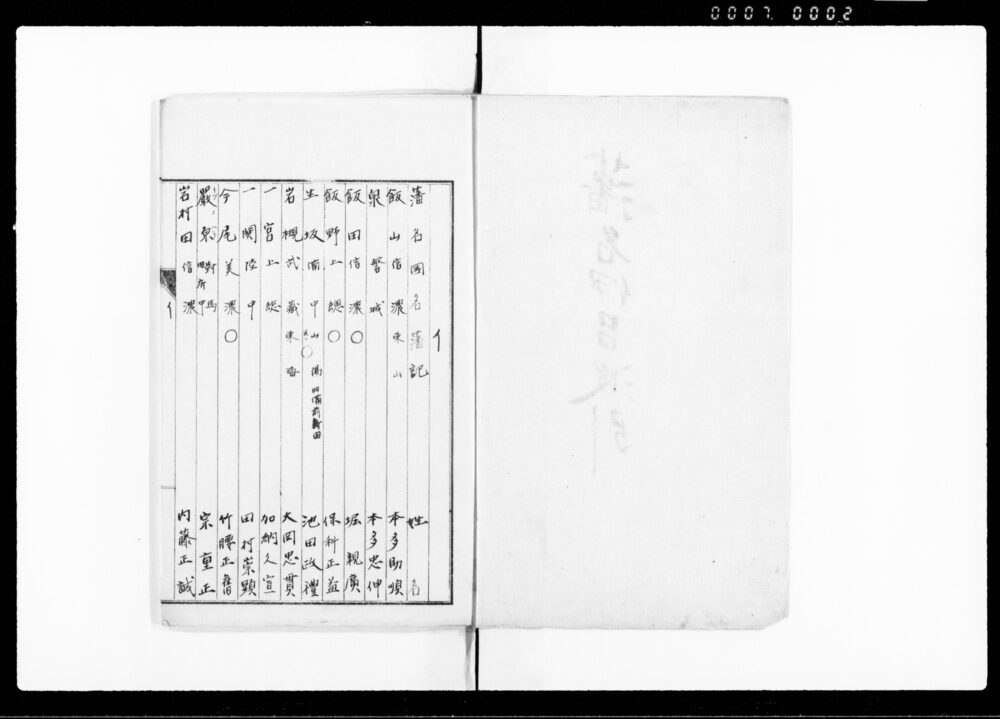 0007. 0002
イ
藩名 国名 藩記 姓名
飯山 信濃 東山 本多助順
泉 磐城 本多忠伸
飯田 信濃 〇 堀親廣
飯野 上總 〇 保科正益
生坂 備中 山陽 旧備前新田 〇 池田政禮
岩槻 武藏 東海 大岡忠貫
一宮 上総 加納久宣
一関 陸中 田村崇顕
今尾 美濃 〇 竹腰正舊
嚴原 對馬 旧府中 宗重正
岩村田 信濃 内藤正誠
イ